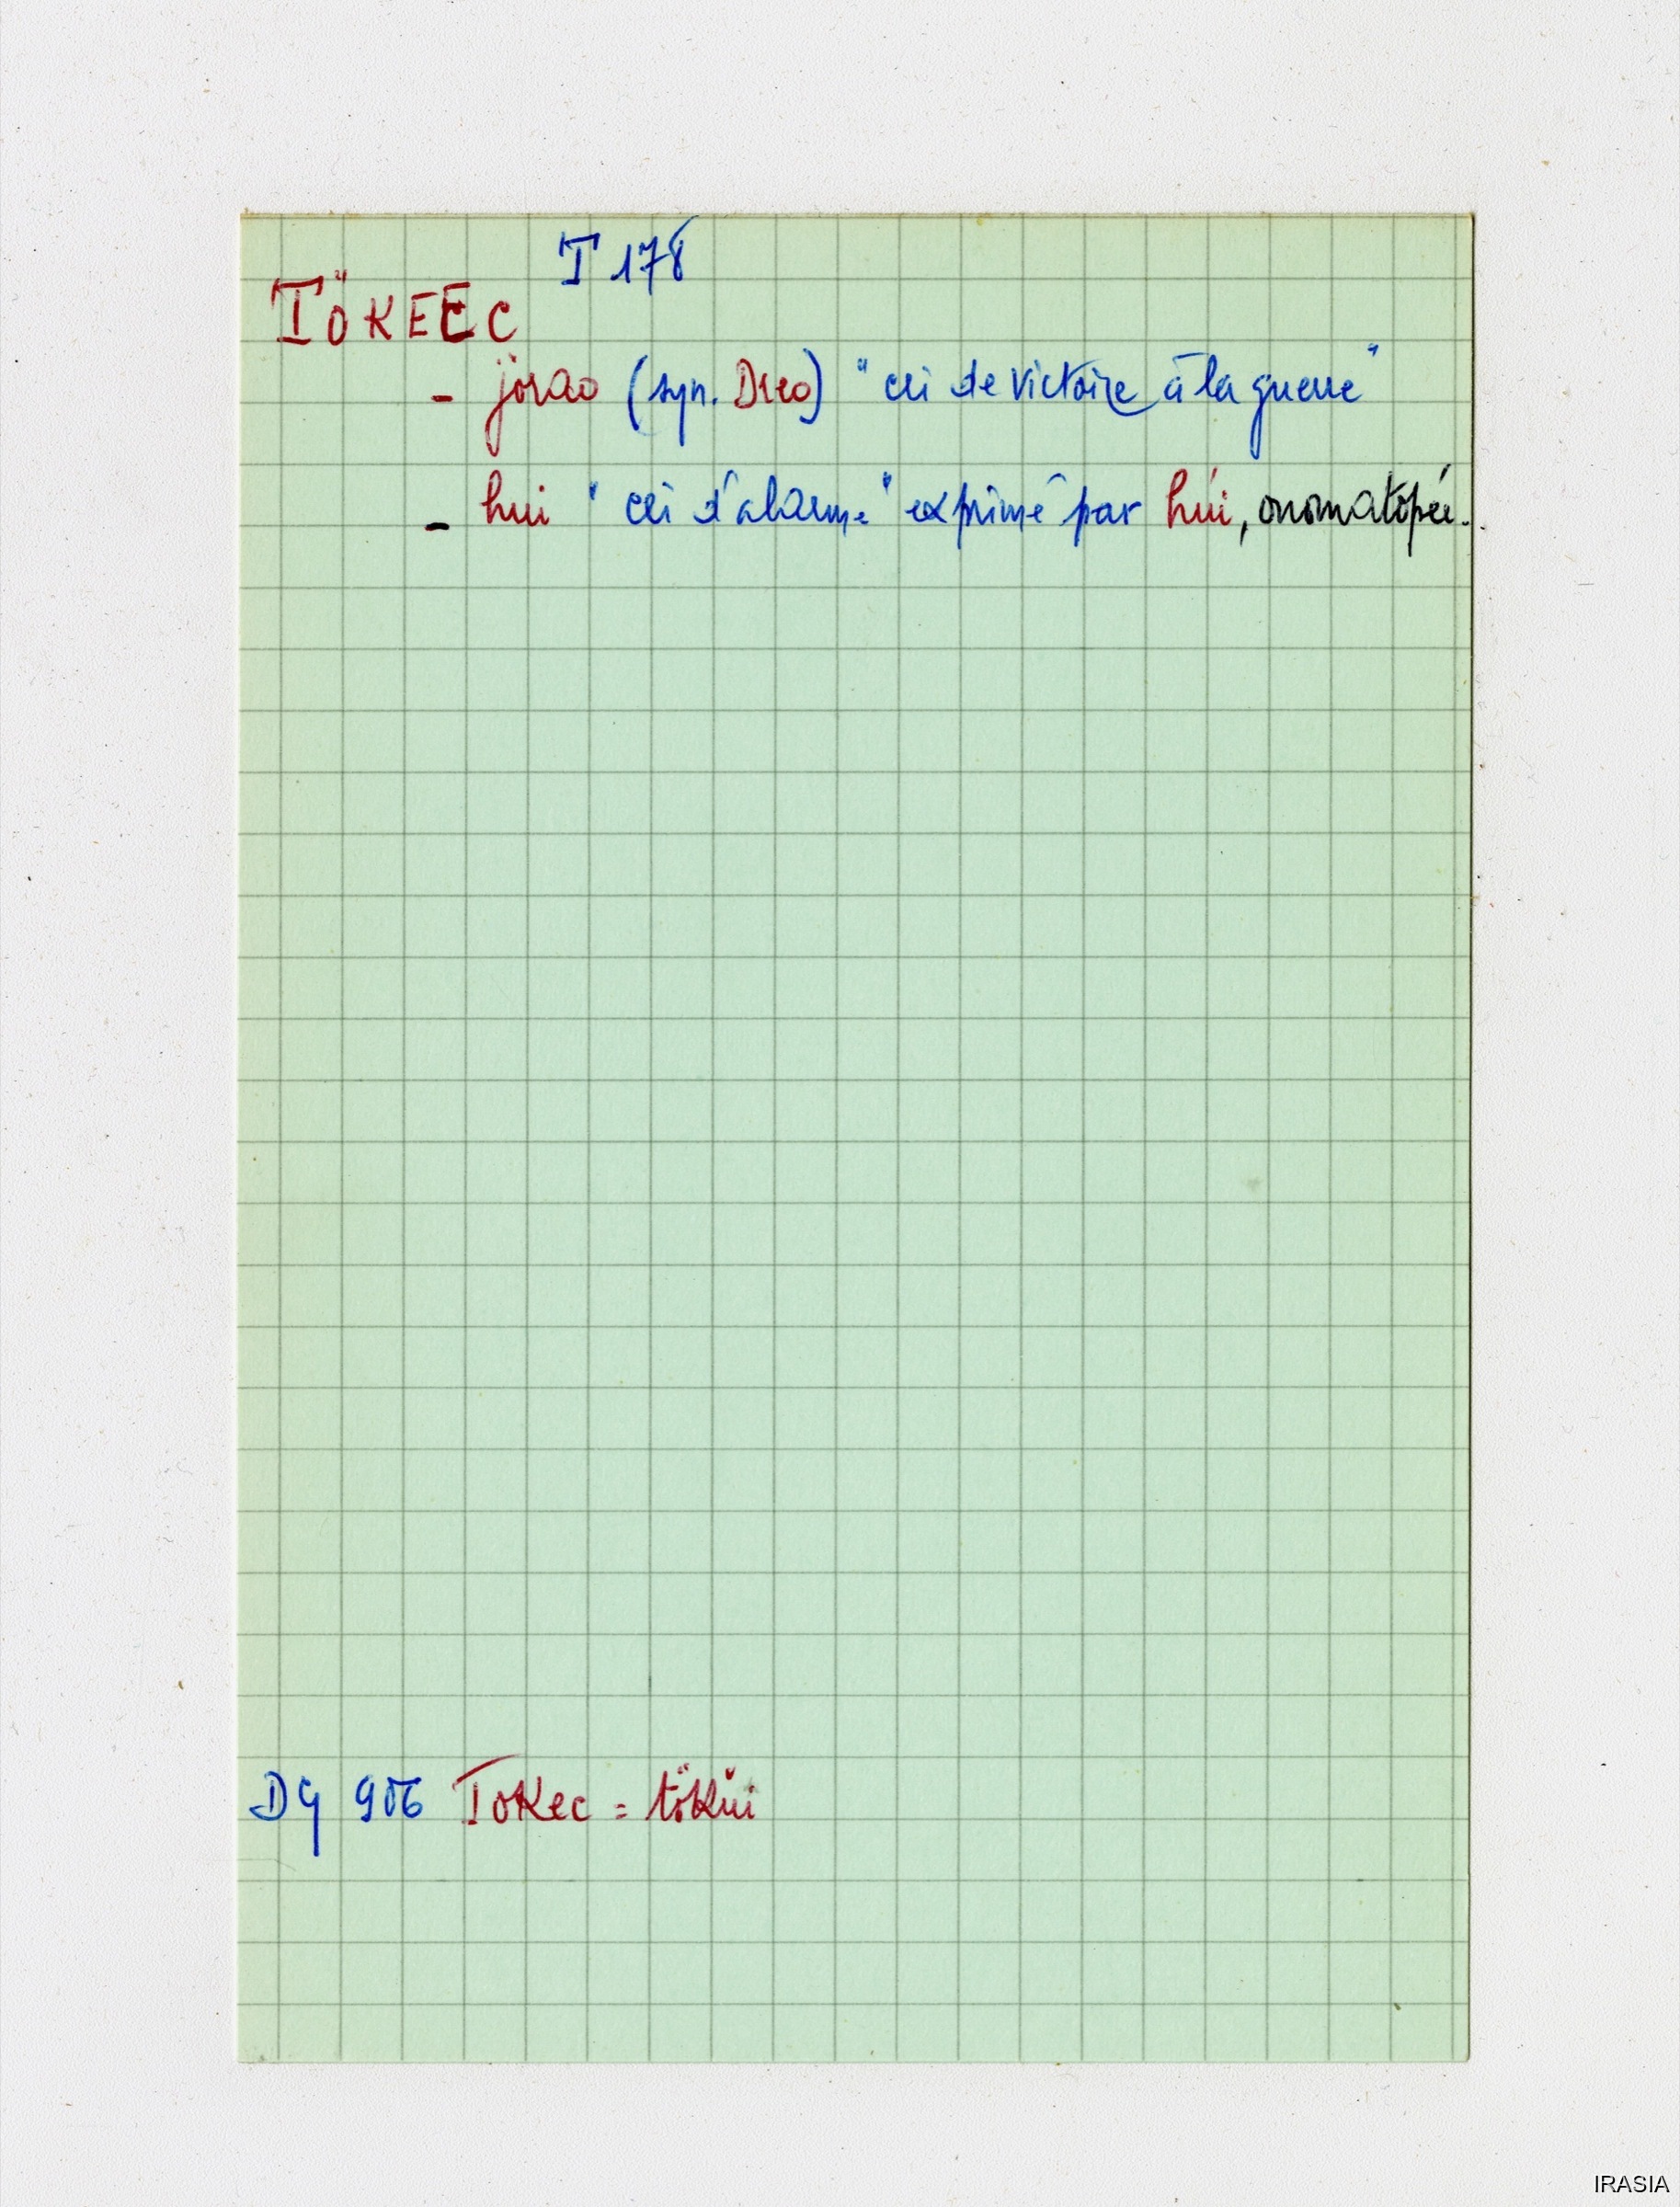 T 178
TÖKEEC
- jorao (syn. Dreo) "cri de victoire à la guerre"
- hui "cri d'alarme" exprimé par húi, onomatopée.
DG 906 ToKec = töKŭi
IRASIA